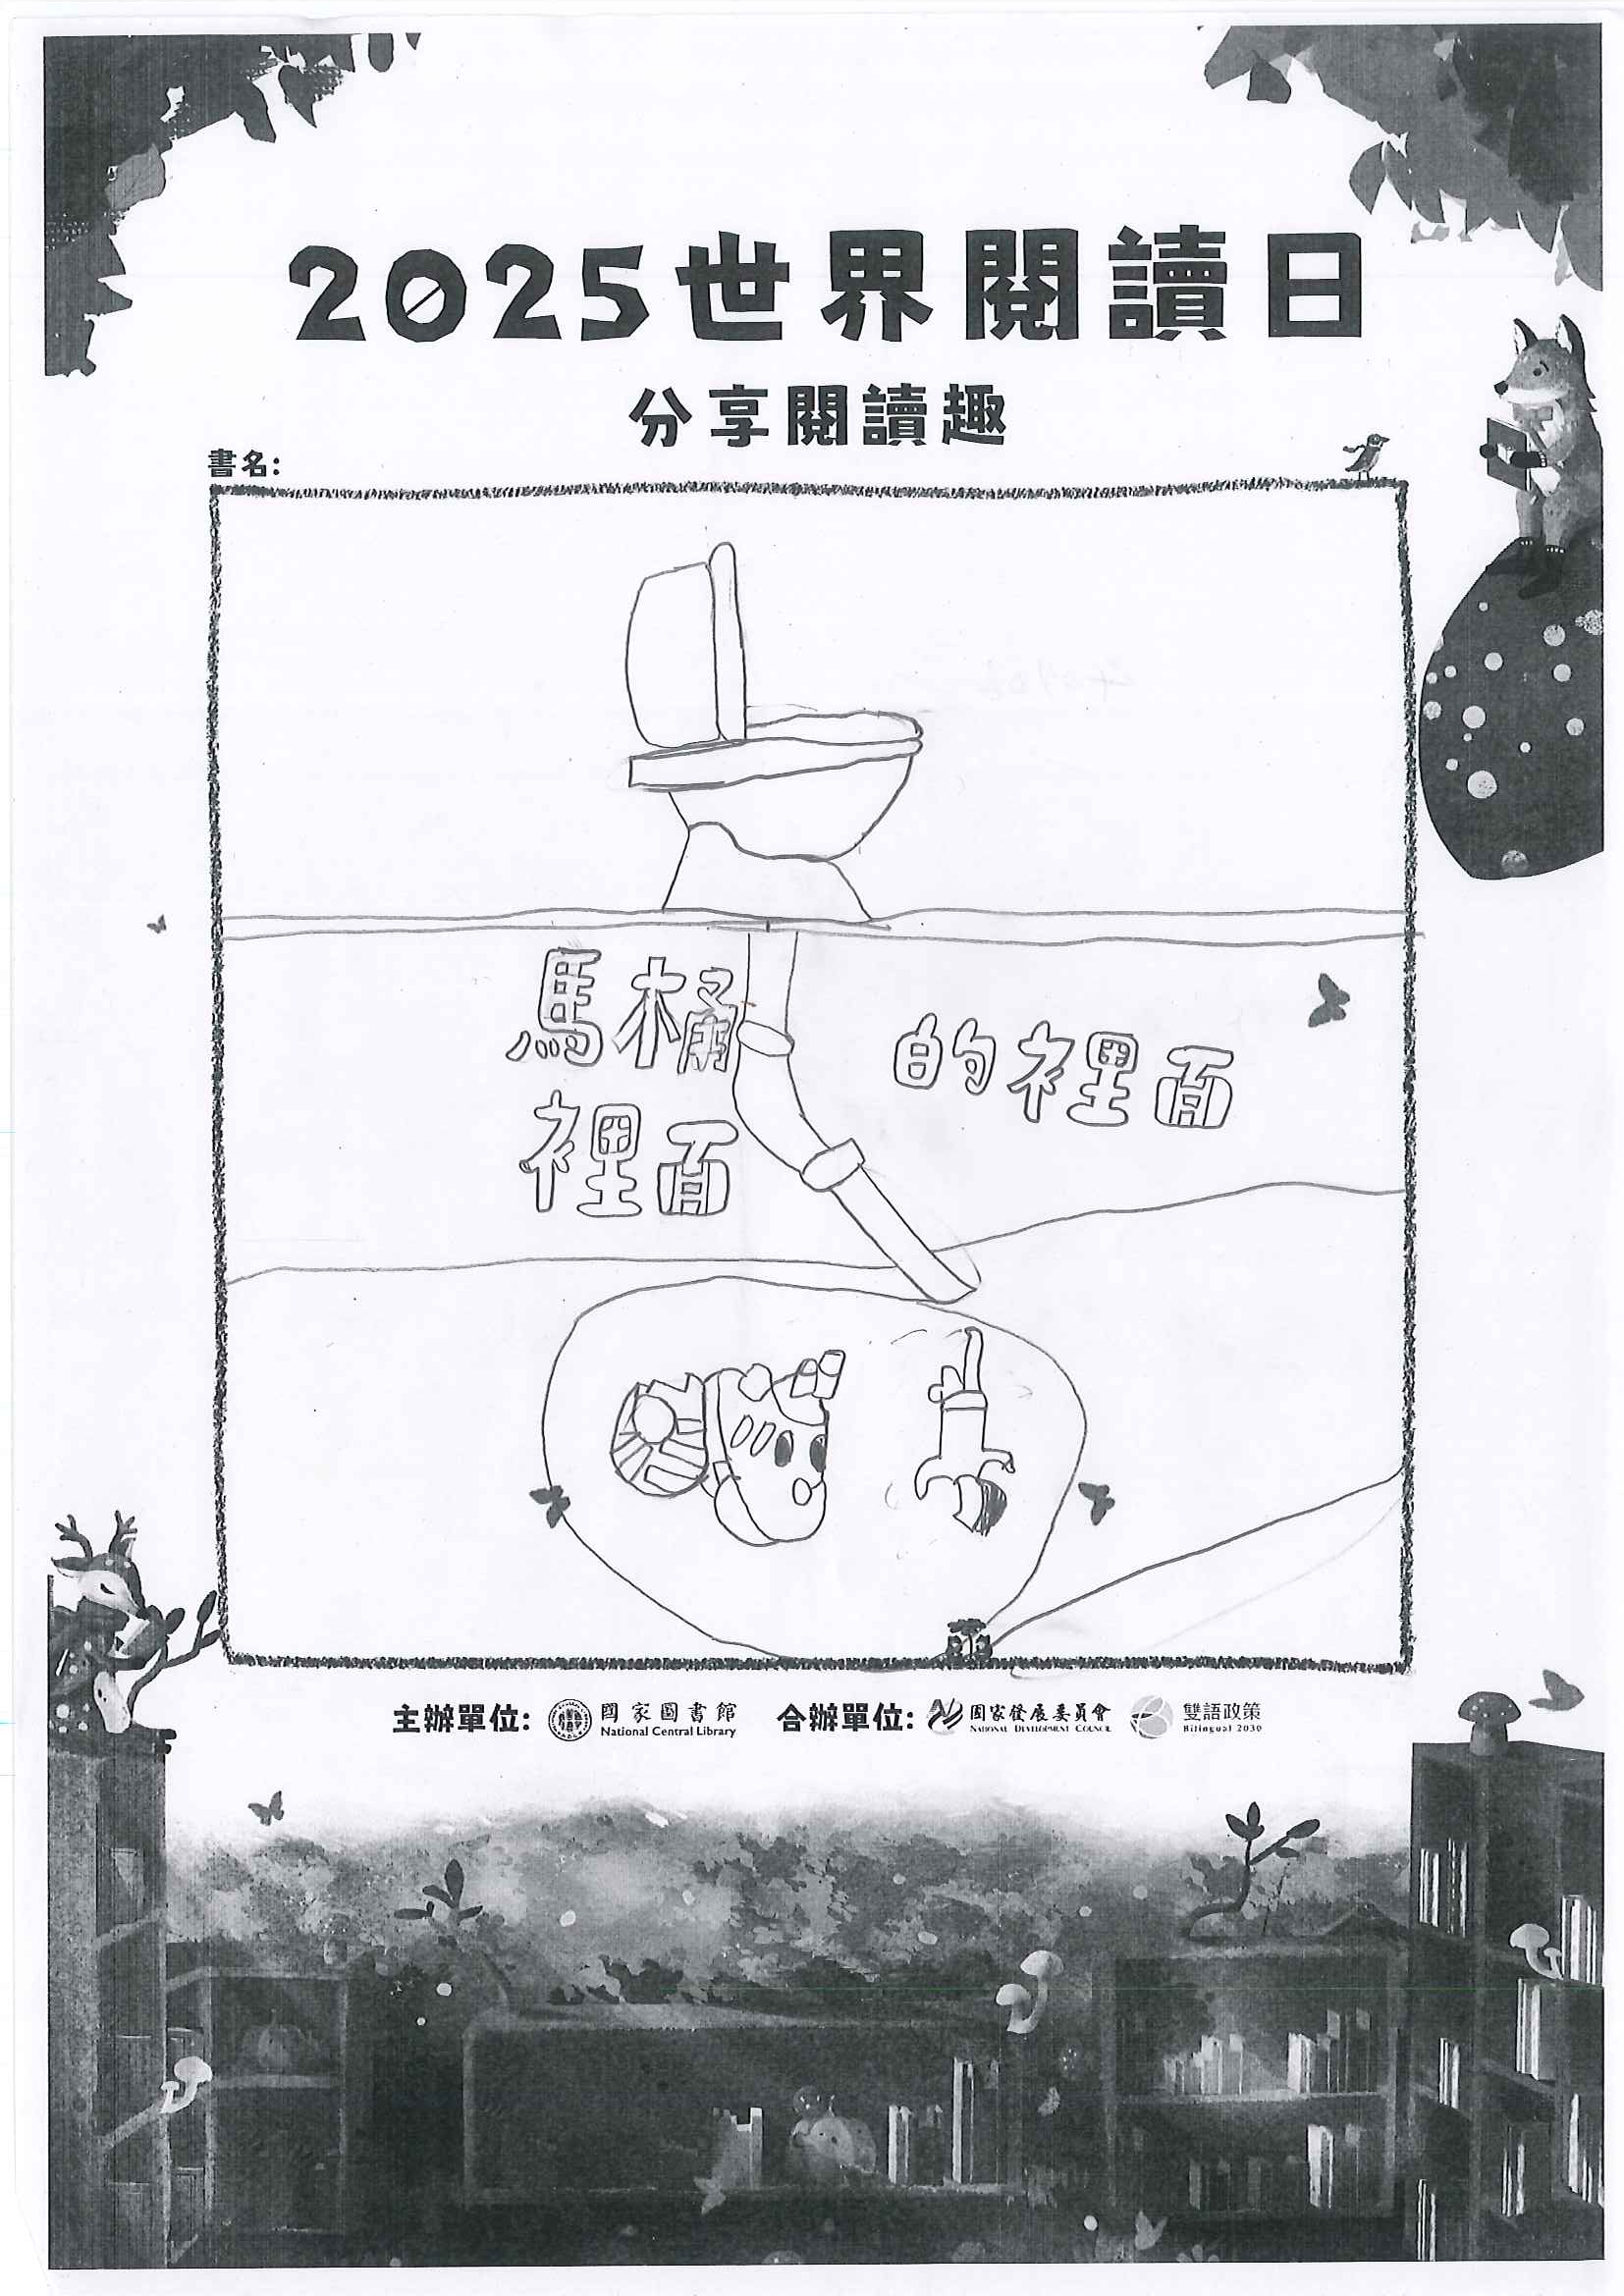 2025世界閱讀日
分享閱讀趣
書名:
馬桶
裡面
的裡面
主辦單位: 國家圖書館 National Central Library 合辦單位: 國家發展委員會 NATIONAL DEVELOPMENT COUNCIL 雙語政策 Bilingual 2030